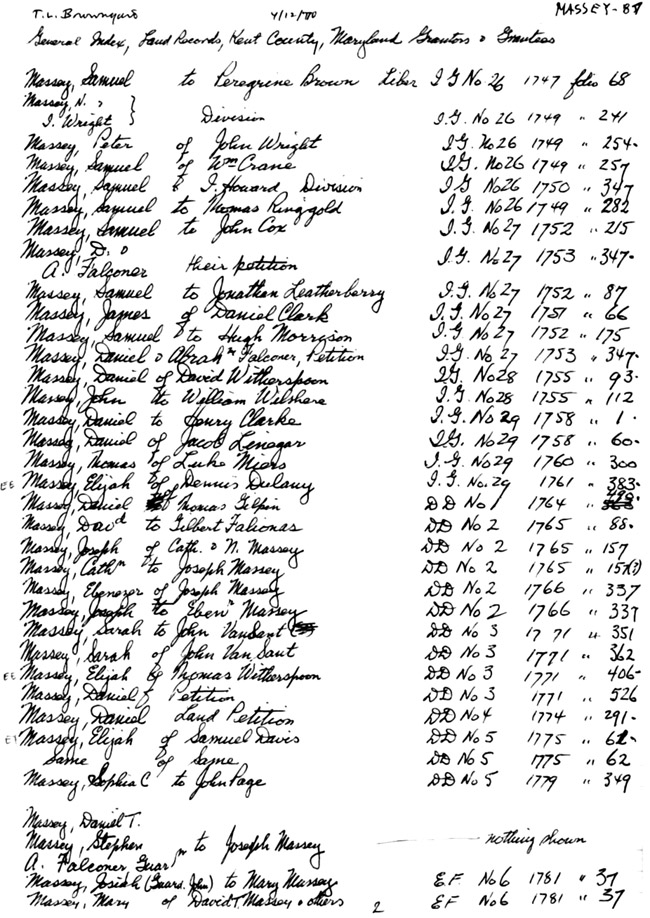 T.L. Brownyard 4/12/00 MASSEY-87
General Index, Land Records, Kent County, Maryland Grantors & Grantees
Massey, Samuel to Peregrine Brown Liber I G No 26 1747 folio 68
Massey, N. &
I. Wright } Division I.G. No 26 1749 " 241
Massey, Peter of John Wright I.G. No 26 1749 " 254.
Massey, Samuel of Wm Crane I.G. No 26 1749 " 257
Massey, Samuel & I. Howard Division I G No 26 1750 " 347
Massey, Samuel to Thomas Ringgold I. G. No 26 1749 " 282
Massey, Samuel to John Cox I. G. No 27 1752 " 215
Massey, D. &
A. Falconer their petition I.G. No 27 1753 " 347.
Massey, Samuel to Jonathan Leatherberry I.G. No 27 1752 " 87
Massey, James of Daniel Clark I.G. No 27 1751 " 66
Massey, Samuel to Hugh Morryson I G No 27 1752 " 175
Massey, Daniel & Abrah m Falconer, Petition I.G. No 27 1753 " 347.
Massey, Daniel of David Witherspoon I.G. No 28 1755 " 93.
Massey, John to William Wilshere I.G. No 28 1755 " 112
Massey, Daniel to Henry Clarke I. G. No 29 1758 " 1.
Massey, Daniel of Jacob Lenegar I.G. No 29 1758 " 60.
Massey, Thomas of Luke Miers I. G. No 29 1760 " 300
EE Massey, Elijah of Dennis Dulany I. G. No. 29 1761 " 383.
Massey, Daniel of Thomas Gilpin DD No 1 1764 "
Massey, Davd to Gilbert Falionas DD No 2 1765 " 88.
Massey, Joseph of Cath. & N. Massey DD No 2 1765 " 157
Massey, Cathn to Joseph Massey DD No 2 1765 " 157(?)
Massey, Ebenezer of Joseph Massey DD No 2 1766 " 337
Massey, Joseph to Ebenr Massey DD No 2 1766 " 337
Massey, Sarah to John VanSant DD No 3 1771 " 351
Massey, Sarah of John Van Sant DD No 3 1771 " 362
EE Massey, Elijah of Thomas Witherspoon DD No 3 1771 " 406.
Massey, Daniel Petition DD No 3 1771 " 526
Massey, Daniel Land Petition DD No 4 1774 " 291.
Massey, Elijah of Samuel Davis DD No 5 1775 " 62.
Same of Same DD No 5 1775 " 62
Massey, Sophia C to John Page DD No 5 1779 " 349
Massey, Daniel T.
Massey, Stephen to Joseph Massey nothing shown
A. Falconer Guarn
Massey, Josiah (Guard. John) to Mary Massey E.F. No 6 1781 " 37
Massey, Mary of David T. Massey & others E F No 6 1781 " 37
2